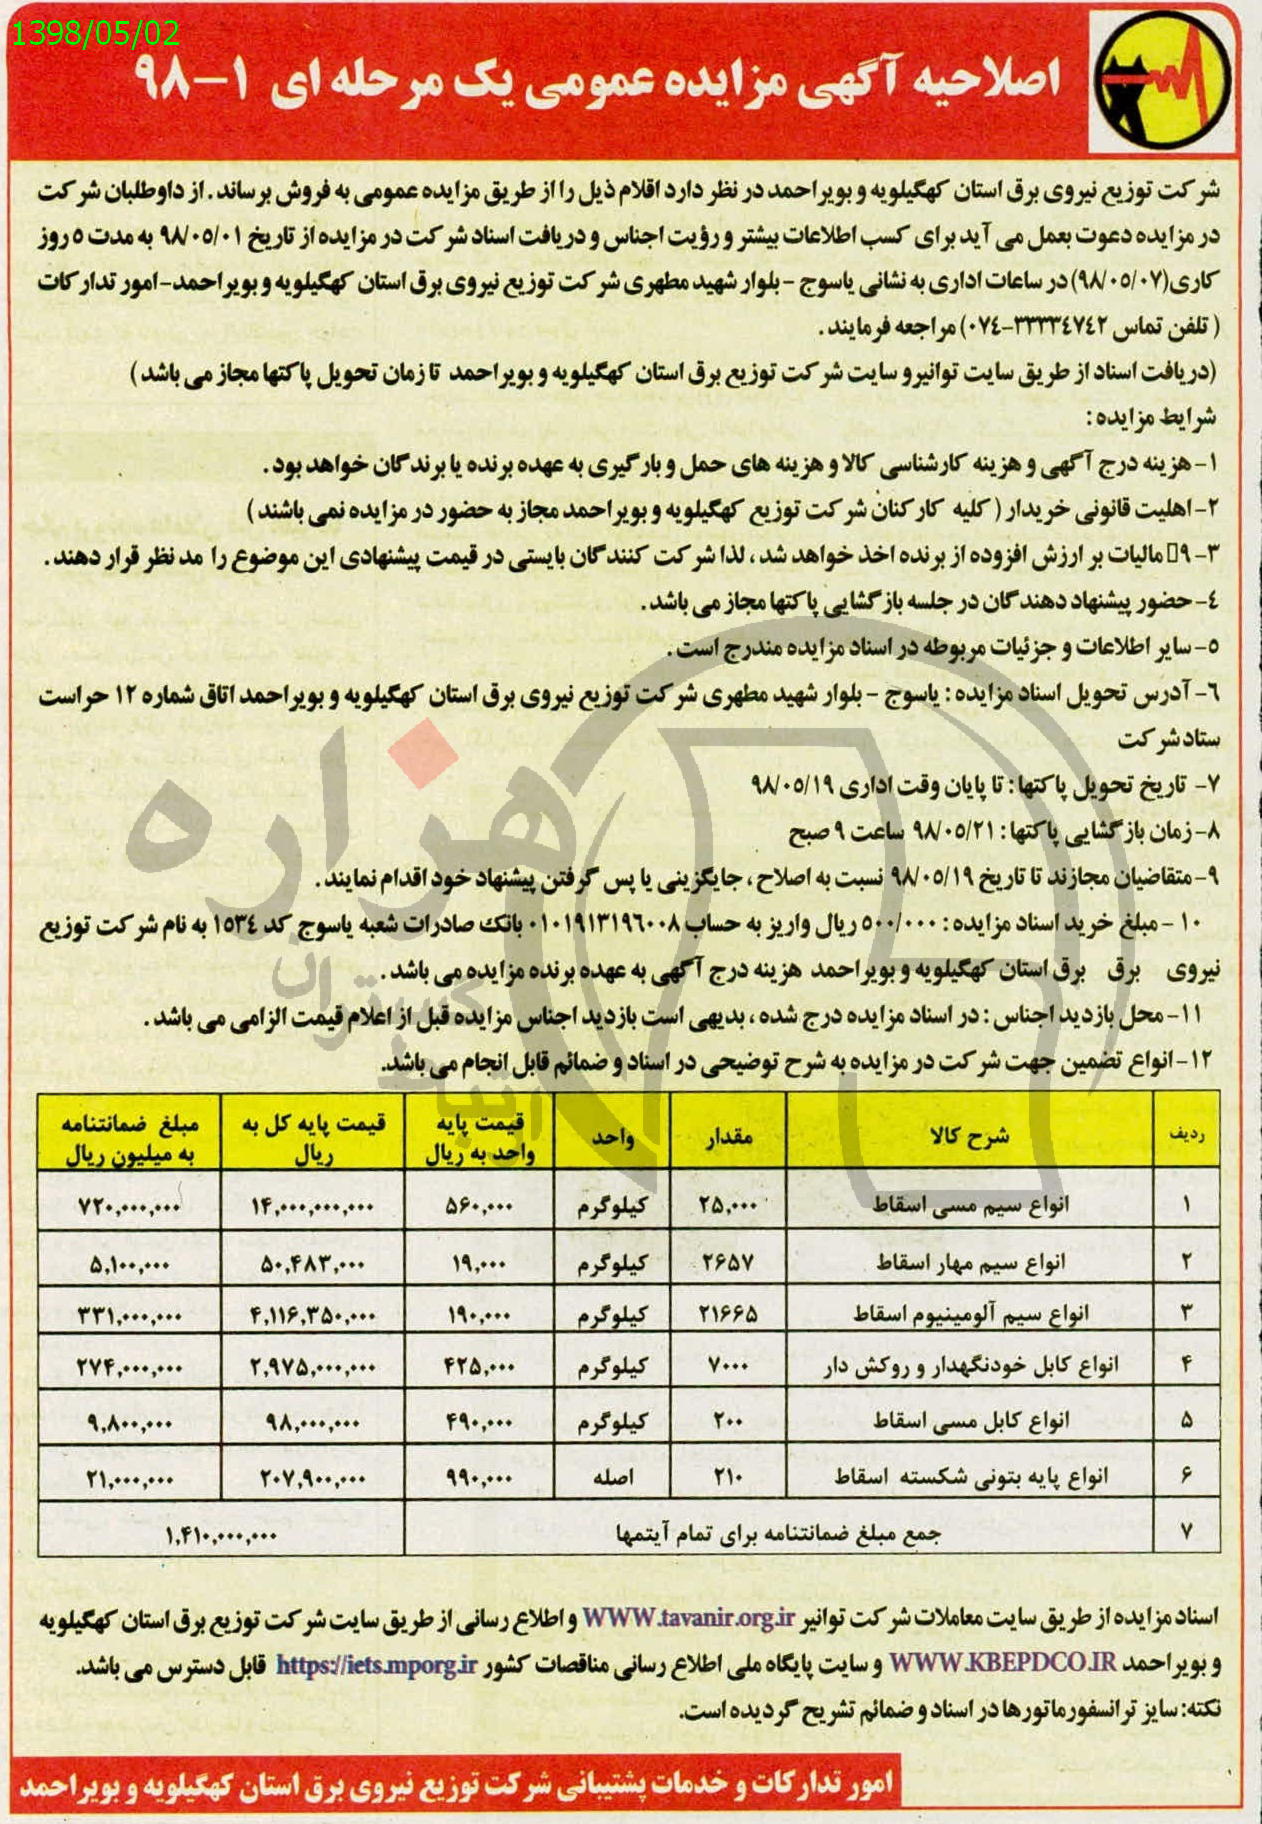 1398/05/02
اصلاحیه آگهی مزایده عمومی یک مرحله ای ۱-۹۸
شرکت توزیع نیروی برق استان کهگیلویه و بویراحمد در نظر دارد اقلام ذیل را از طریق مزایده عمومی به فروش برساند. از داوطلبان شرکت
در مزایده دعوت بعمل می آید برای کسب اطلاعات بیشتر و رؤیت اجناس و دریافت اسناد شرکت در مزایده از تاریخ ۹۸/۰۵/۰۱ به مدت ۵ روز
کاری(۹۸/۰۵/۰۷) در ساعات اداری به نشانی یاسوج - بلوار شهید مطهری شرکت توزیع نیروی برق استان کهگیلویه و بویراحمد- امور تدارکات
( تلفن تماس ۳۳۳۳۴۷۴۲-۰۷۴) مراجعه فرمایند.
(دریافت اسناد از طریق سایت توانیر و سایت شرکت توزیع برق استان کهگیلویه و بویراحمد تا زمان تحویل پاکتها مجاز می باشد )
شرایط مزایده :
۱- هزینه درج آگهی و هزینه کارشناسی کالا و هزینه های حمل و بارگیری به عهده برنده یا برندگان خواهد بود.
۲- اهلیت قانونی خریدار ( کلیه کارکنان شرکت توزیع کهگیلویه و بویراحمد مجاز به حضور در مزایده نمی باشند )
۳- ۹▯ مالیات بر ارزش افزوده از برنده اخذ خواهد شد ، لذا شرکت کنندگان بایستی در قیمت پیشنهادی این موضوع را مد نظر قرار دهند.
۴- حضور پیشنهاد دهندگان در جلسه بازگشایی پاکتها مجاز می باشد.
۵- سایر اطلاعات و جزئیات مربوطه در اسناد مزایده مندرج است.
۶- آدرس تحویل اسناد مزایده : یاسوج - بلوار شهید مطهری شرکت توزیع نیروی برق استان کهگیلویه و بویراحمد اتاق شماره ۱۲ حراست
ستاد شرکت
۷- تاریخ تحویل پاکتها : تا پایان وقت اداری ۹۸/۰۵/۱۹
۸- زمان بازگشایی پاکتها : ۹۸/۰۵/۲۱ ساعت ۹ صبح
۹- متقاضیان مجازند تا تاریخ ۹۸/۰۵/۱۹ نسبت به اصلاح ، جایگزینی یا پس گرفتن پیشنهاد خود اقدام نمایند.
۱۰ - مبلغ خرید اسناد مزایده : ۵۰۰/۰۰۰ ریال واریز به حساب ۰۱۰۱۹۱۳۱۹۶۰۰۸ بانک صادرات شعبه یاسوج کد ۱۵۳۴ به نام شرکت توزیع
نیروی برق برق استان کهگیلویه و بویراحمد هزینه درج آگهی به عهده برنده مزایده می باشد.
۱۱- محل بازدید اجناس : در اسناد مزایده درج شده ، بدیهی است بازدید اجناس مزایده قبل از اعلام قیمت الزامی می باشد.
۱۲- انواع تضمین جهت شرکت در مزایده به شرح توضیحی در اسناد و ضمائم قابل انجام می باشد.
ردیف شرح کالا مقدار واحد قیمت پایه واحد به ریال قیمت پایه کل به ریال مبلغ ضمانتنامه به میلیون ریال
۱ انواع سیم مسی اسقاط ۲۵,۰۰۰ کیلوگرم ۵۶۰,۰۰۰ ۱۴,۰۰۰,۰۰۰,۰۰۰ ۷۲۰,۰۰۰,۰۰۰
۲ انواع سیم مهار اسقاط ۲۶۵۷ کیلوگرم ۱۹,۰۰۰ ۵۰,۴۸۳,۰۰۰ ۵,۱۰۰,۰۰۰
۳ انواع سیم آلومینیوم اسقاط ۲۱۶۶۵ کیلوگرم ۱۹۰,۰۰۰ ۴,۱۱۶,۳۵۰,۰۰۰ ۳۳۱,۰۰۰,۰۰۰
۴ انواع کابل خودنگهدار و روکش دار ۷۰۰۰ کیلوگرم ۴۲۵,۰۰۰ ۲,۹۷۵,۰۰۰,۰۰۰ ۲۷۴,۰۰۰,۰۰۰
۵ انواع کابل مسی اسقاط ۲۰۰ کیلوگرم ۴۹۰,۰۰۰ ۹۸,۰۰۰,۰۰۰ ۹,۸۰۰,۰۰۰
۶ انواع پایه بتونی شکسته اسقاط ۲۱۰ اصله ۹۹۰,۰۰۰ ۲۰۷,۹۰۰,۰۰۰ ۲۱,۰۰۰,۰۰۰
۷ جمع مبلغ ضمانتنامه برای تمام آیتمها ۱,۴۱۰,۰۰۰,۰۰۰
اسناد مزایده از طریق سایت معاملات شرکت توانیر WWW.tavanir.org.ir و اطلاع رسانی از طریق سایت شرکت توزیع برق استان کهگیلویه
و بویراحمد WWW.KBEPDCO.IR و سایت پایگاه ملی اطلاع رسانی مناقصات کشور https://iets.mporg.ir قابل دسترس می باشد.
نکته: سایز ترانسفورماتورها در اسناد و ضمائم تشریح گردیده است.
امور تدارکات و خدمات پشتیبانی شرکت توزیع نیروی برق استان کهگیلویه و بویراحمد
هزاره